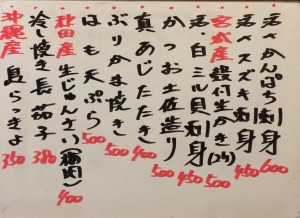 活〆かんぱち刺身 600
活〆スズキ刺身 450
宮城産 殻付生かき(2ケ) 500
活・白ミル貝刺身 450
かつお土佐造り 500
真あじたたき 400
ぶりかま焼き 500
はも天ぷら 500
秋田産 生じゅんさい(福肉) 400
冷し焼き長茄子 380
沖縄産 島らっきょ 350